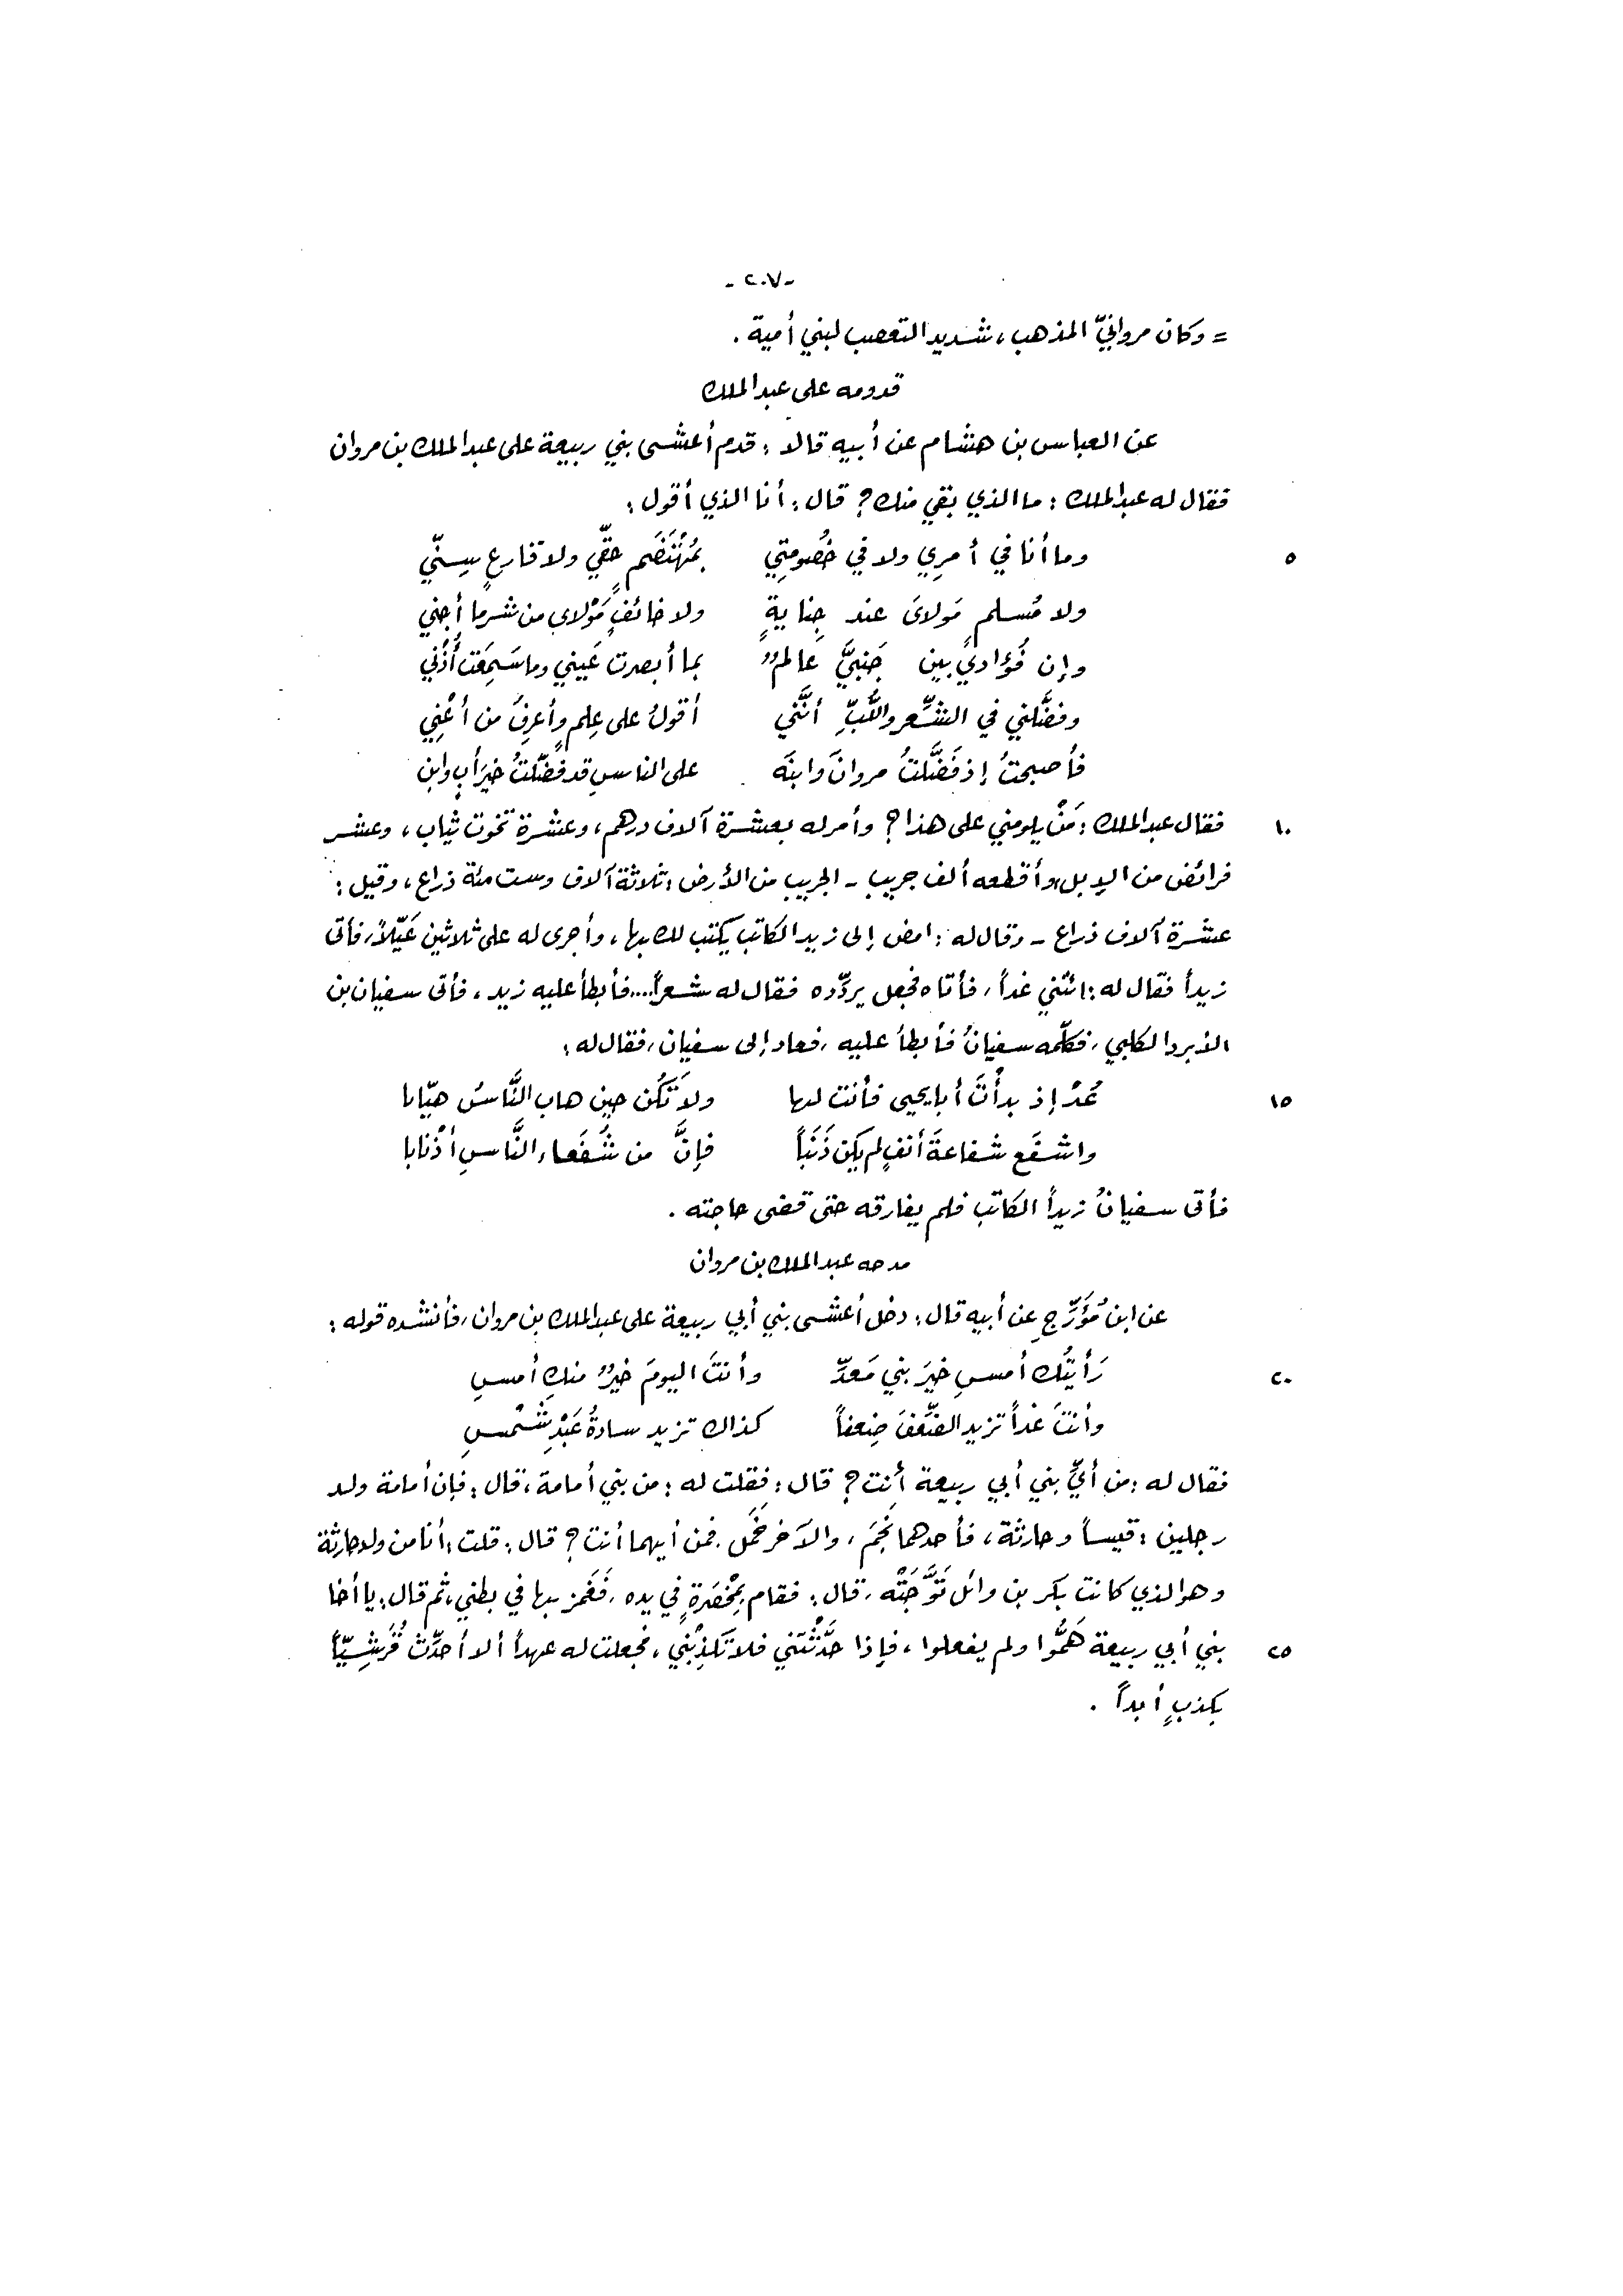 -٢٠٧-
= وكان مروانيّ المذهب، شديد التعصب لبني أمية .
قدومه على عبدالملك
عن العباس بن هشام عن أبيه قالا : قدم أعشى بني ربيعة على عبدالملك بن مروان
فقال له عبدالملك : ما الذي بقي منك ? قال : أنا الذي أقول :
٥ وما أنا في أمرِي ولا في خُصُومتِي بمُهْتَضَمٍ حقّي ولا قارعٍ سِنّي
ولا مُسلمٍ مَولايَ عند جِنايةٍ ولا خائفٍ مَوْلاي من شر ما أجني
وإن فُؤادي بين جَنبيَّ عَالمٌ بما أبصرت عَيني وما سَمِعَت أُذُني
وفضَّلني في الشِّعر واللُّبِّ أنَّني أقولُ على عِلمٍ وأعرِفُ من أعْنِي
فأصبحتُ إذ فَضَّلتُ مروانَ وابنَه على الناسِ قد فضّلتُ خيرَ أبٍ وابنِ
١٠ فقال عبدالملك : مَنْ يلومني على هذا ? وأمر له بعشرة آلاف درهم، وعشرة تخوت ثياب، وعشر
فرائض من الإبل، وأقطعه ألف جريب - الجريب من الأرض : ثلاثة آلاف وست مئة ذراع، وقيل :
عشرة آلاف ذراع - وقال له : امض إلى زيد الكاتب يكتب لك بها، وأجرى له على ثلاثين عَيّلاً، فأتى
زيداً فقال له : ائتني غداً، فأتاه فجعل يردّده فقال له شعراً.... فأبطأ عليه زيد، فأتى سفيان بن
الأبرد الكلبي، فكلّمه سفيانُ فأبطأ عليه، فعاد إلى سفيان، فقال له :
١٥ عُدْ إذ بدأْتَ أبا يحيى فأنت لها ولا تَكُن حين هاب النَّاسُ هيّابا
واشفَع شفاعةَ أنفٍ لم يكن ذَنَباً فإنَّ من شُفَعاء النَّاسِ أذْنابا
فأتى سفيانُ زيداً الكاتب فلم يفارقه حتى قضى حاجته .
مدحه عبدالملك بن مروان
عن ابن مُؤَرِّجٍ عن أبيه قال : دخل أعشى بني أبي ربيعة على عبدالملك بن مروان، فأنشده قوله :
٢٠ رَأيتُك أمسِ خيرَ بني مَعدِّ وأنتَ اليومَ خيرٌ منك أمسِ
وأنتَ غداً تزيد الضِّعفَ ضِعفاً كذاك تزيد سادةُ عَبْدِ شَمْسِ
فقال له : من أيِّ بني أبي ربيعة أنت ? قال : فقلت له : من بني أمامة، قال : فإن أمامة ولد
رجلين : قيساً وحارثة، فأحدهما نَجَمَ، والآخر خَمَل. فمن أيهما أنت ? قال : قلت : أنا من ولد حارثة
وهو الذي كانت بكر بن وائل تَوَّجَتْه، قال : فقام بِمْخَصَرةٍ في يده، فَغَمز بها في بطني، ثم قال : يا أخا
٢٥ بني أبي ربيعة هَمُّوا ولم يفعلوا، فإذا حَدَّثْتَني فلا تَكذِبْني، فجعلت له عهداً ألا أحدّث قُرَشِيّاً
بكذبٍ أبداً .